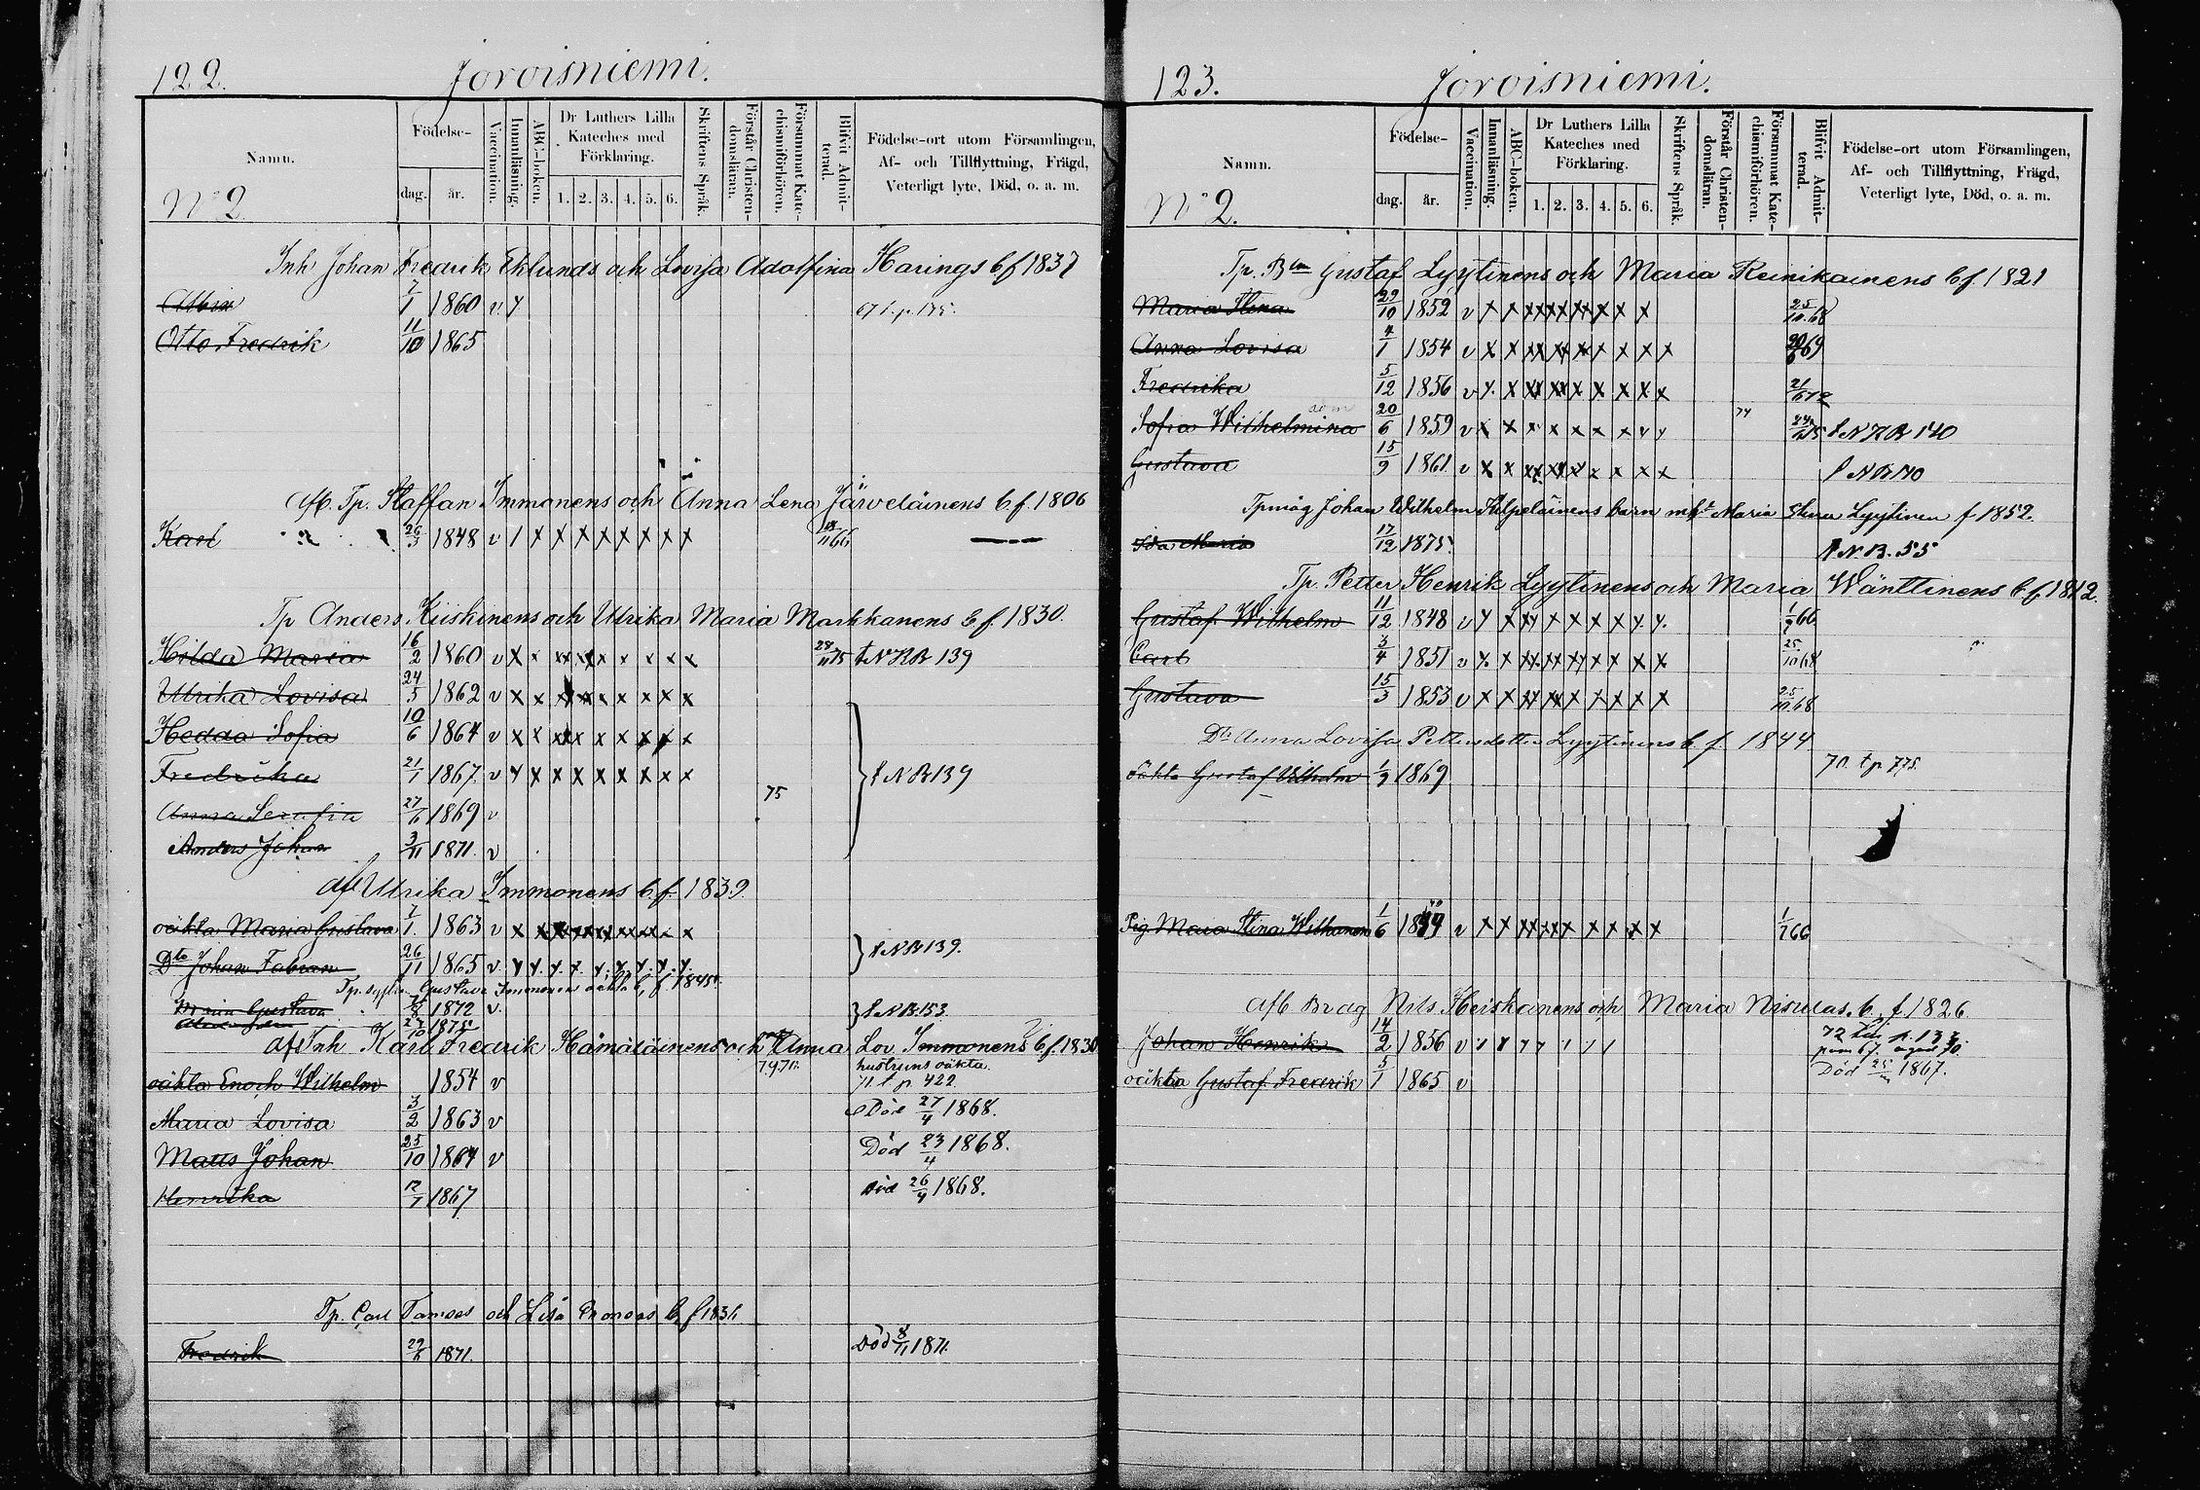 122.
Joroisniemi.
Namn.
Födelse-
dag.
år.
Vaccination.
Innanläsning.
ABC-boken.
Dr Luthers Lilla
Kateches med
Förklaring.
1. 2. 3. 4. 5. 6.
Skriftens Språk.
Förstår Christen-
domsläran.
Försummat Kate-
chismiförhören.
Blifvit Admit-
terad.
Födelse-ort utom Församlingen,
Af- och Tillflyttning, Frägd,
Veterligt lyte, Död, o. a. m.
No 2.
Inh Johan Fredrik Eklunds och Lovisa Adolfina Harings b f 1837
Albin 7/1 1860 v
Otto Fredrik 11/10 1865
afl. Tp. Staffan Immonens och Anna Lena Järveläinens b. f. 1806
Karl 26/3 1848 v / x x x x x x x x
Tp Anders Kiiskinens och Ulrika Maria Markkanens b f 1830.
Hilda Maria 16/2 1860 v x x xx xx x x x x x 139
Ulrika Lovisa 24/5 1862 v x x
Hedda Sofia 10/6 1864 v x x
Fredrika 21/1 1867. v x x x x x x x x x
75
t N B 139
Anna Serafia 27/6 1869 v
Anders Johan 3/11 1871. v
afl Ulrika Immonens b. f. 1839.
oäkta Maria Gustava 7/1 1863 v x x
t N B 139.
Dto Johan Fabian 26/11 1865 v.
Gustava Immonens oäkta b. f 1845.
Maria Gustava 1872 v.
t N B. 153.
1875
af Inh Karl Fredrik Hämäläinens och Anna Lov. Immonens b. f. 1830
hustruns oäkta.
oäkta Enoch Wilhelm 1854 v 71 t p. 422.
Maria Lovisa 3/2 1863 v Död 27/4 1868.
Matts Johan 25/10 1864 v Död 23/4 1868.
Henrika 12/1 1867 Död 26/4 1868.
Tp. Carl och Lisa b f 1836
Fredrik 29/6 1871. Död 8/11 1871.
123.
Joroisniemi.
Namn.
Födelse-
dag.
år.
Vaccination.
Innanläsning.
ABC-boken.
Dr Luthers Lilla
Kateches med
Förklaring.
1. 2. 3. 4. 5. 6.
Skriftens Språk.
Förstår Christen-
domsläran.
Försummat Kate-
chismiförhören.
Blifvit Admit-
terad.
Födelse-ort utom Församlingen,
Af- och Tillflyttning, Frägd,
Veterligt lyte, Död, o. a. m.
No 2.
Tp. Gustaf Lyytinens och Maria Reinikainens b f. 1821
Maria Stina 29/10 1852 v x x 25/10.68
Anna Lovisa 4/1 1854 v x x 69
Fredrika 5/12 1856 v x. x 21/6 72
Sofia Wilhelmina 20/6 1859 v x x x x x x x 74 140
Gustava 15/9 1861. v x x
Johan Wilhelm Kilpeläinens barn m Maria Lyytinen f 1852.
Ida Maria 17/12 1875. t N. B. 55
Tp. Petter Henrik Lyytinens och Maria Wänttinens b f 1812.
Gustaf Wilhelm 11/12 1848 v 66
Carl 3/4 1851 v x. x 25/10 68
Gustava 15/3 1853 v x x 25/10.68
Dtr Anna Lovisa Pettersdotter Lyytinens b. f. 1844
oäkta Gustaf Wilhelm 1/9 1869 70. t p. 775.
Pig. Maria Stina 1/6 v x x 66
afl Nils Heiskanens och Maria Nisulas b. f. 1826
Johan Henrik 14/2 1856 v
oäkta Gustaf Fredrik 5/1 1865 v Död 1867.